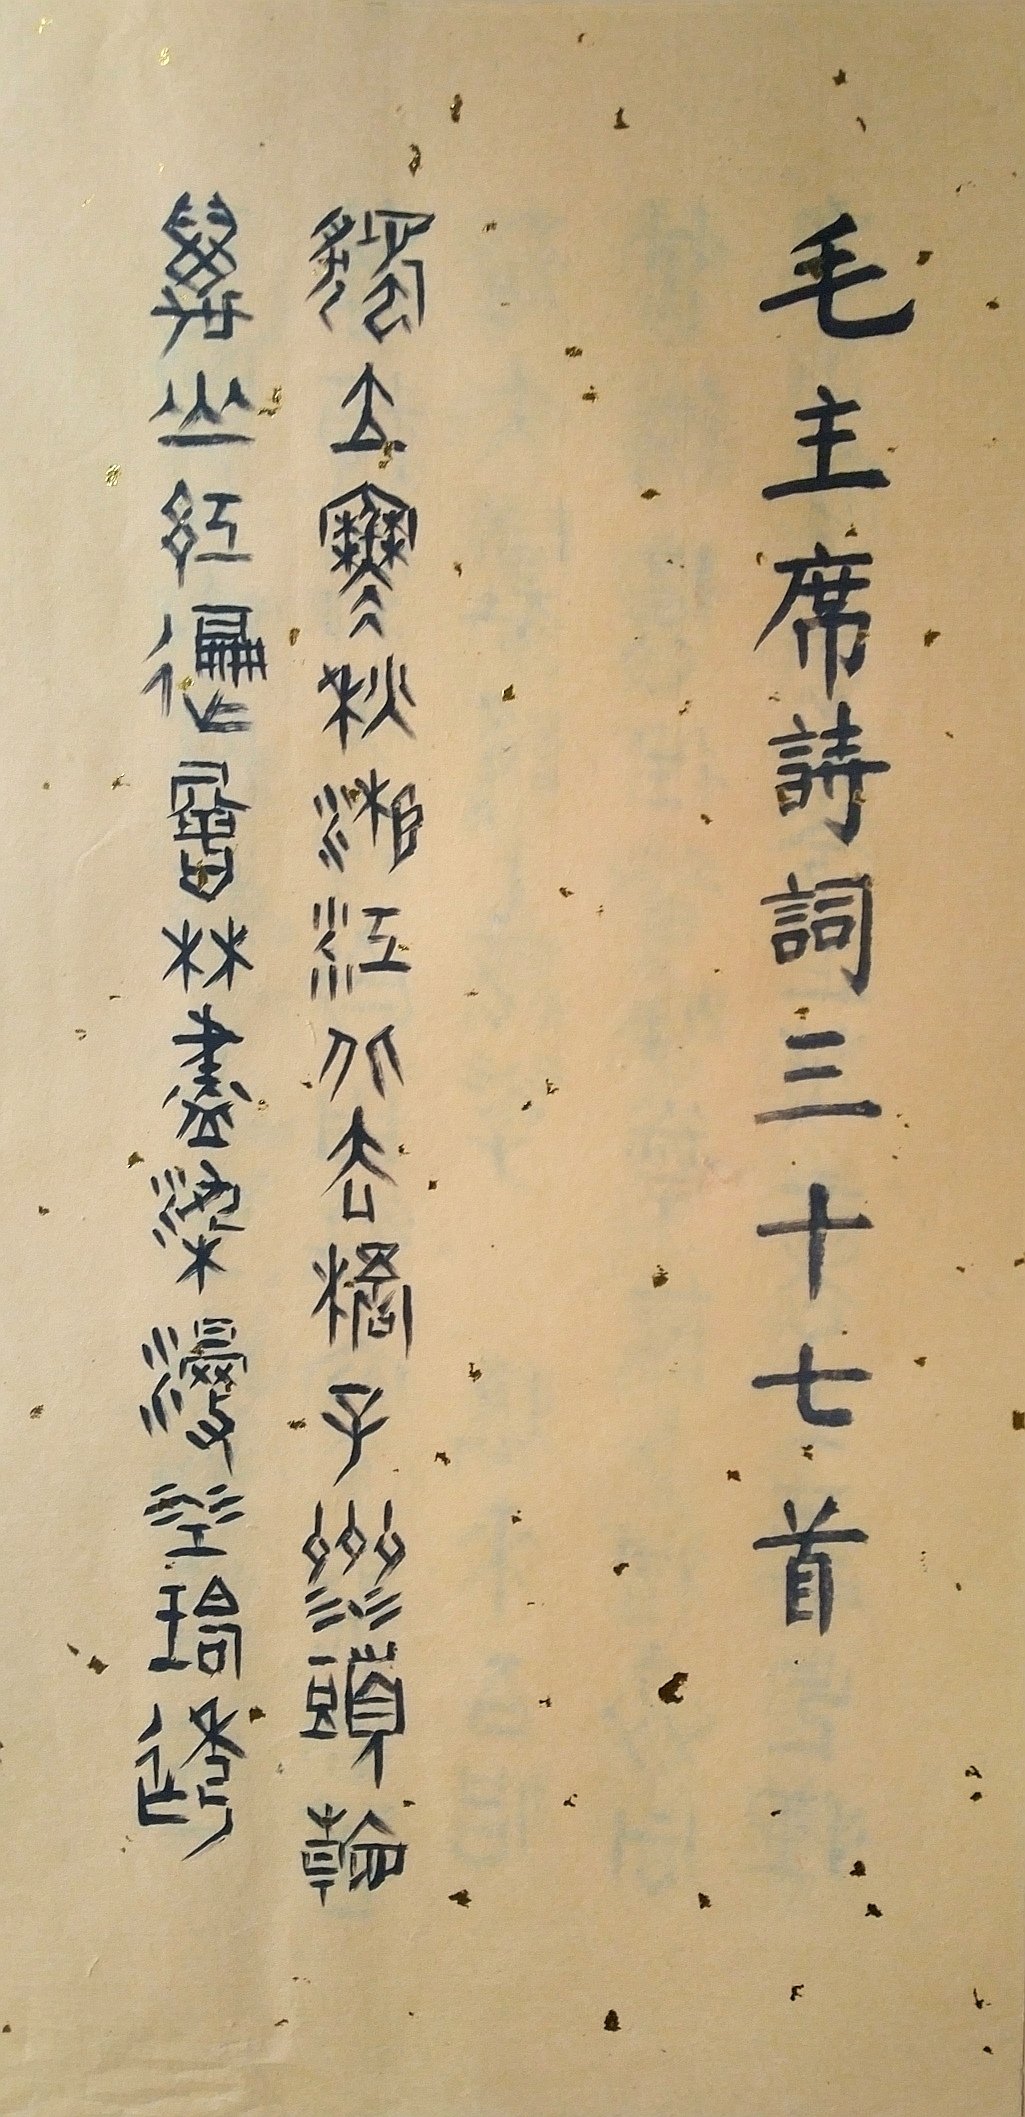 毛主席詩詞三十七首
獨立寒秋湘江北去橘子洲頭看
萬山紅遍層林盡染漫江碧透